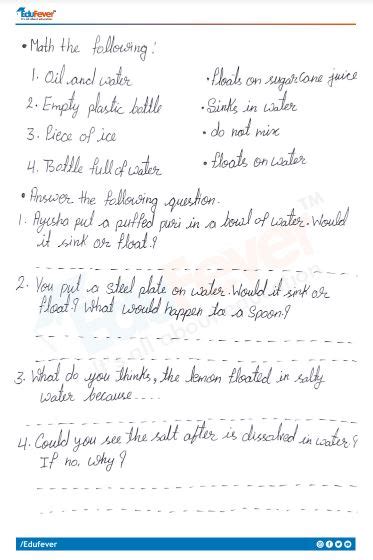 EduFever
It's all about education
• Math the following:
1. Oil and water • floats on sugarcane juice
2. Empty plastic bottle • Sinks in water
3. Piece of ice • do not mix
4. Bottle full of water • floats on water
• Answer the following question.
1. Ayusha put a puffed puri in a bowl of water. Would
it sink or float?
2. You put a steel plate on water. Would it sink or
float? What would happen to a spoon?
3. What do you thinks, the lemon floated in salty
water because.....
4. Could you see the salt after is dissolved in water?
If no, why?
EduFever™
It's all about education
/Edufever